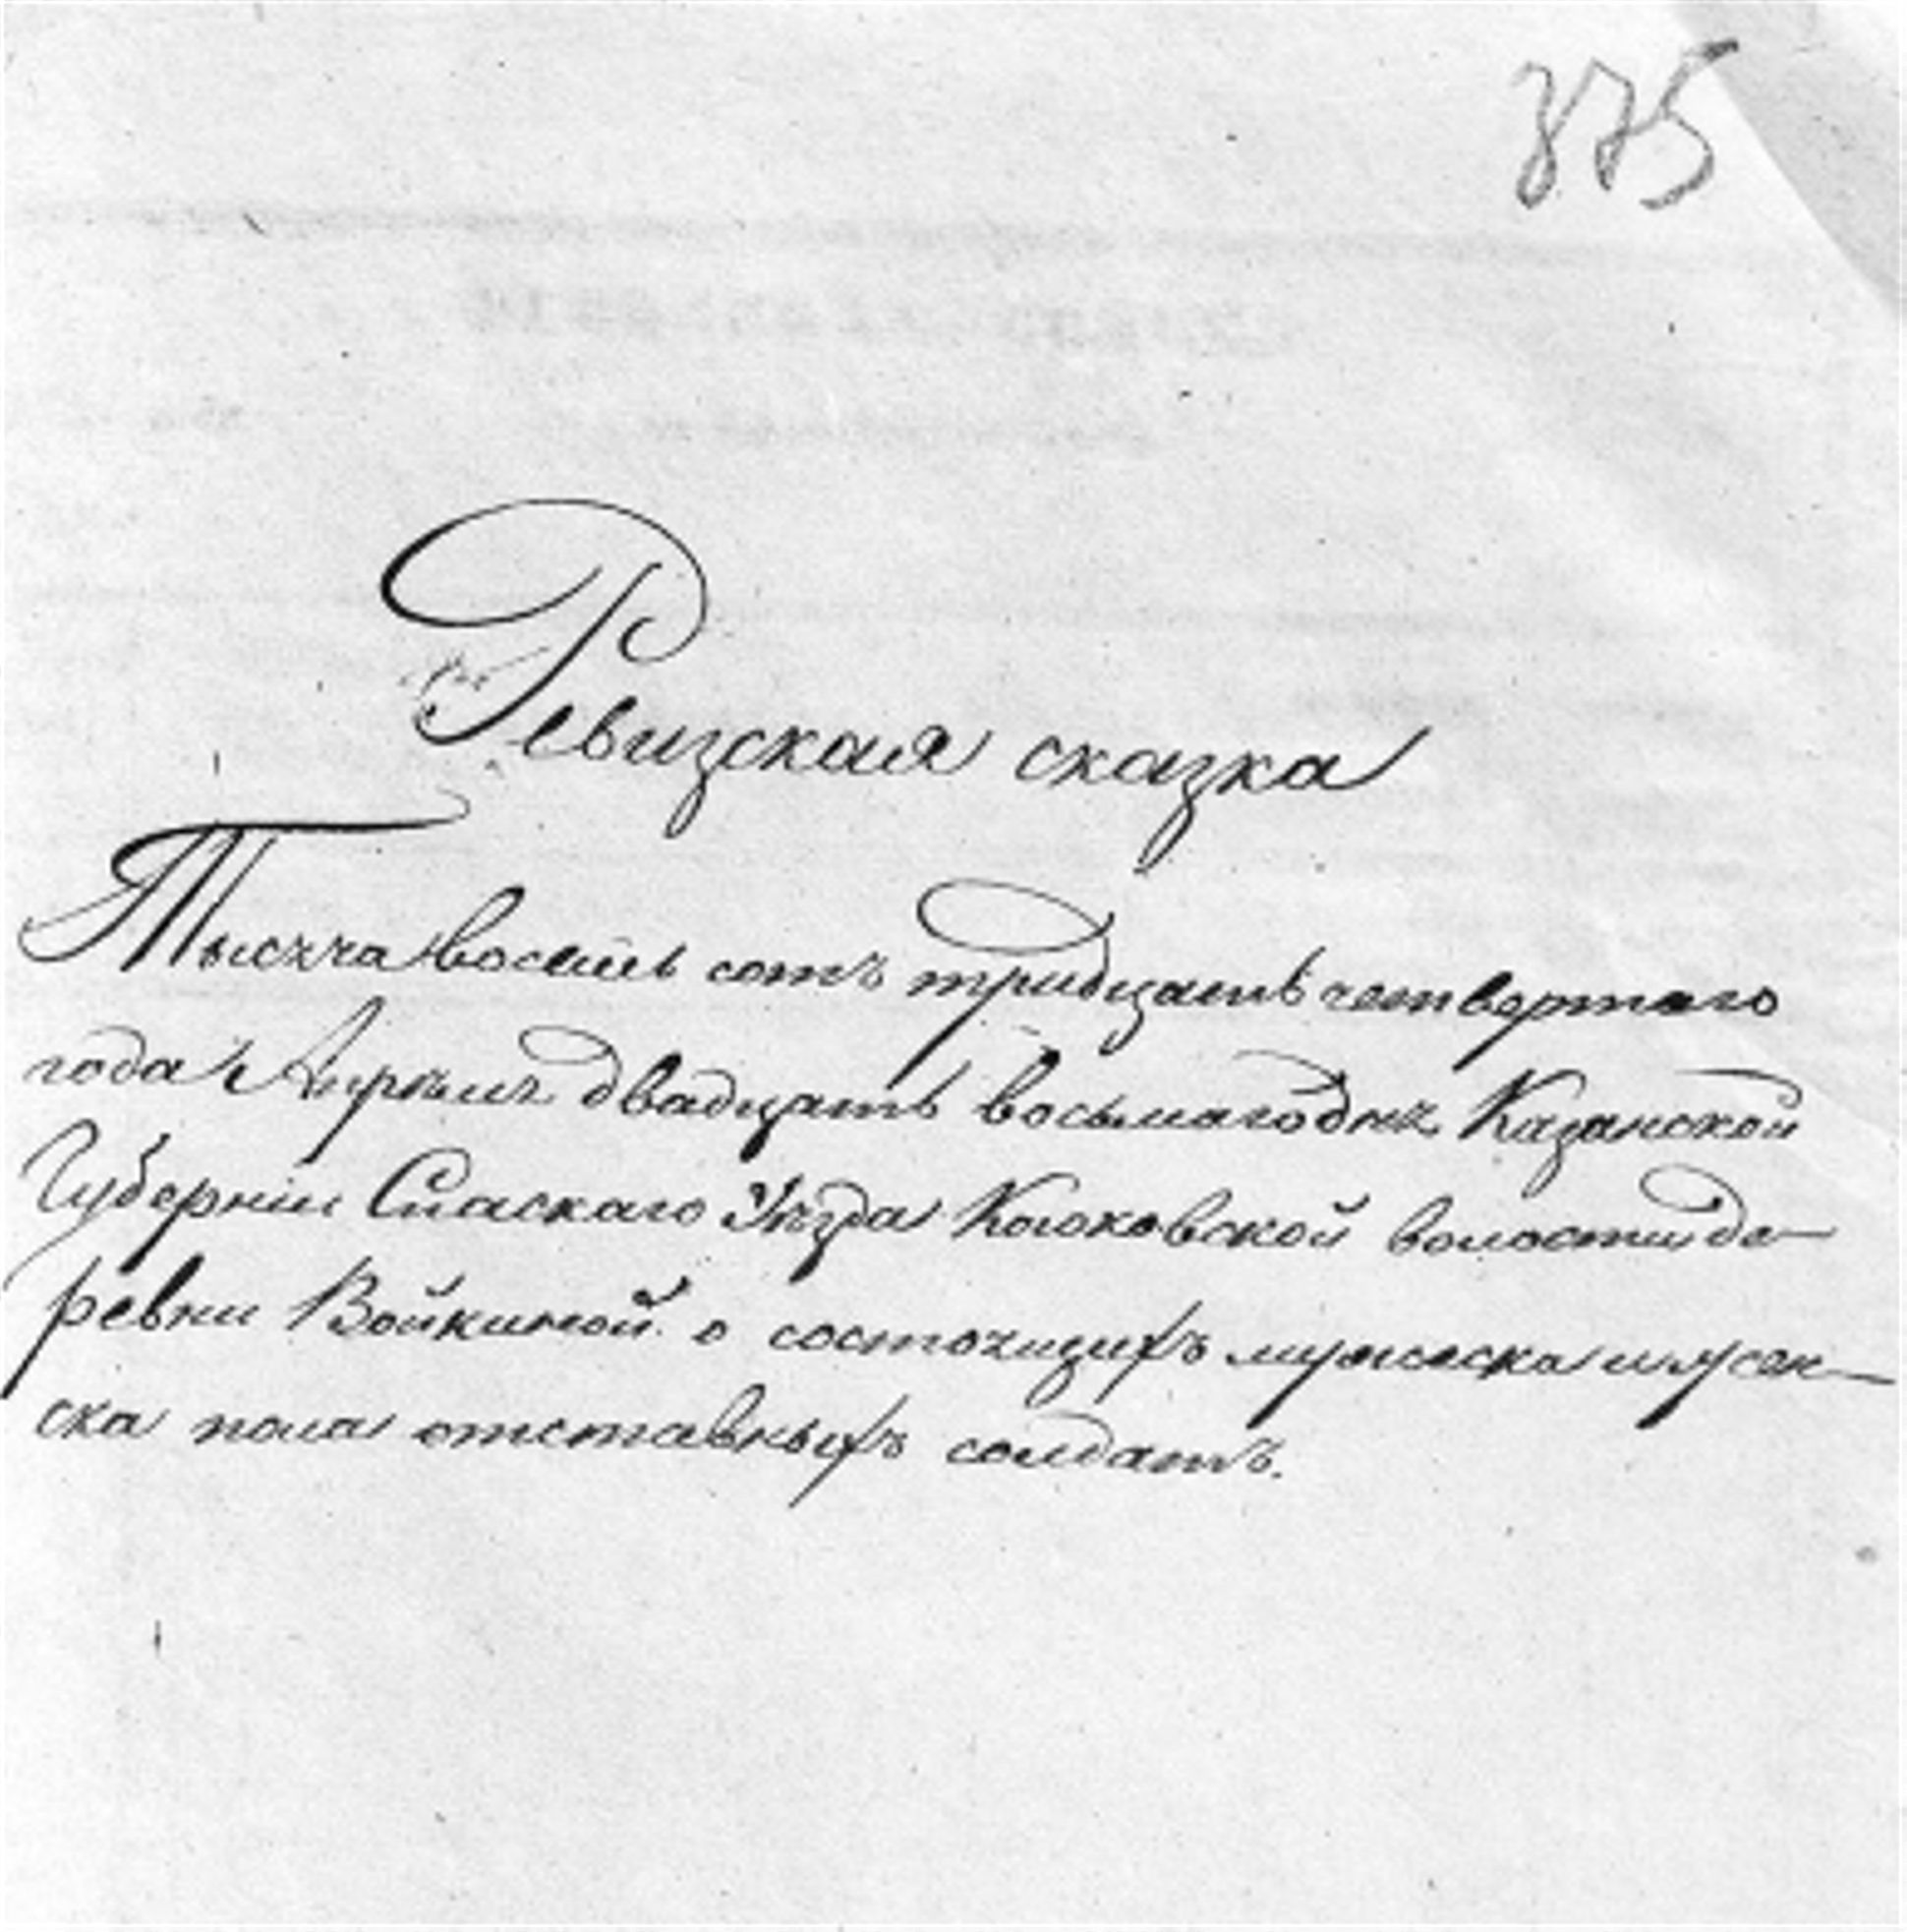 375
Ревизская сказка
Тысяча восемь сотъ тридцать четвертаго
года Апреля двадцать восьмаго дня Казанской
Губернiи Спаскаго Уезда Кококовской волости де-
ревни Войкиной о состоящихъ мужеска и жен-
ска пола отставныхъ солдатъ.